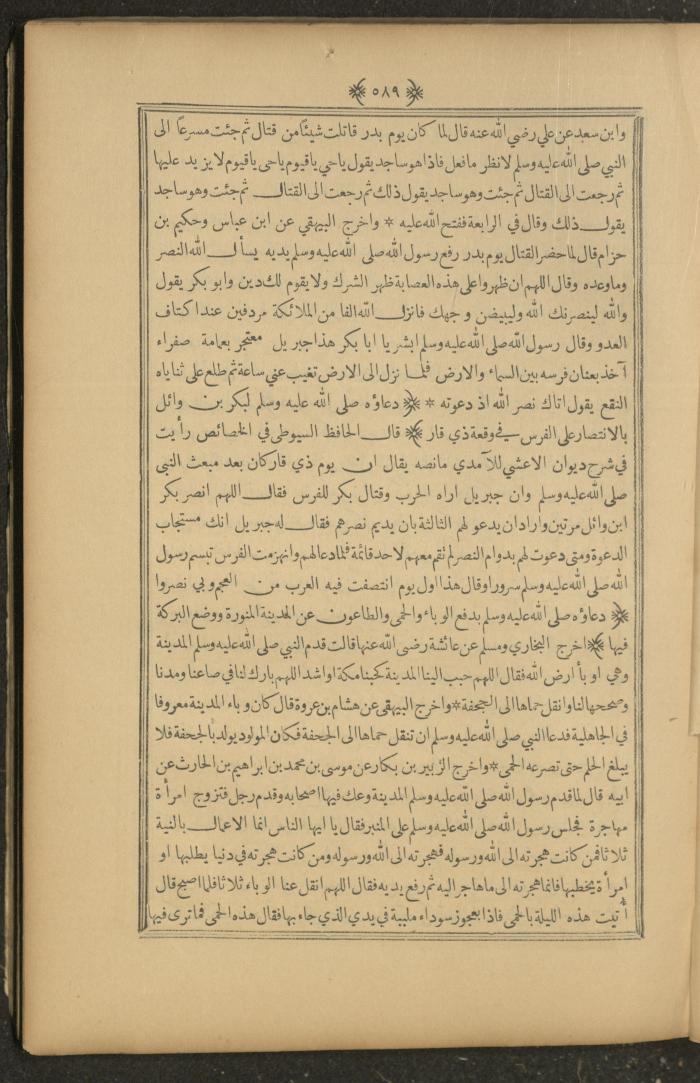 ﴿ ٥٨٩ ﴾
وابن سعد عن علي رضي الله عنه قال لما كان يوم بدر قاتلت شيئا من قتال ثم جئت مسرعا الى
النبي صلى الله عليه وسلم لانظر ما فعل فاذا هو ساجد يقول ياحي ياقيوم ياحي ياقيوم لا يزيد عليها
ثم رجعت الى القتال ثم جئت وهو ساجد يقول ذلك ثم رجعت الى القتال ثم جئت وهو ساجد
يقول ذلك وقال في الرابعة ففتح الله عليه * واخرج البيهقي عن ابن عباس وحكيم بن
حزام قال لما حضر القتال يوم بدر رفع رسول الله صلى الله عليه وسلم يديه يسأل الله النصر
وما وعده وقال اللهم ان ظهروا على هذه العصابة ظهر الشرك ولا يقوم لك دين وابو بكر يقول
والله لينصرنك الله وليبيضن وجهك فانزل الله الفا من الملائكة مردفين عند اكتاف
العدو وقال رسول الله صلى الله عليه وسلم ابشر يا ابا بكر هذا جبريل معتجر بعمامة صفراء
آخذ بعنان فرسه بين السماء والارض فلما نزل الى الارض تغيب عني ساعة ثم طلع على ثناياه
النقع يقول اتاك نصر الله اذ دعوته * ﴿ دعاؤه صلى الله عليه وسلم لبكر بن وائل
بالانتصار على الفرس في وقعة ذي قار ﴾ قال الحافظ السيوطي في الخصائص رأيت
في شرح ديوان الاعشي للآمدي ما نصه يقال ان يوم ذي قار كان بعد مبعث النبي
صلى الله عليه وسلم وان جبريل اراه الحرب وقتال بكر للفرس فقال اللهم انصر بكر
ابن وائل مرتين واراد ان يدعو لهم الثالثة بان يديم نصرهم فقال له جبريل انك مستجاب
الدعوة ومتى دعوت لهم بدوام النصر لم تقم معهم لاحد قائمة فلما دعا لهم وانهزمت الفرس تبسم رسول
الله صلى الله عليه وسلم سرورا وقال هذا اول يوم انتصفت فيه العرب من العجم وبي نصروا
﴿ دعاؤه صلى الله عليه وسلم بدفع الوباء والحمى والطاعون عن المدينة المنورة ووضع البركة
فيها ﴾ اخرج البخاري ومسلم عن عائشة رضى الله عنها قالت قدم النبي صلى الله عليه وسلم المدينة
وهي اوبأ ارض الله فقال اللهم حبب الينا المدينة كحبنا مكة او اشد اللهم بارك لنا في صاعنا ومدنا
وصححها لنا وانقل حماها الى الجحفة * واخرج البيهقي عن هشام بن عروة قال كان وباء المدينة معروفا
في الجاهلية فدعا النبي صلى الله عليه وسلم ان تنقل حماها الى الجحفة فكان المولود يولد بالجحفة فلا
يبلغ الحلم حتى تصرعه الحمى * واخرج الزبير بن بكار عن موسى بن محمد بن ابراهيم بن الحارث عن
ابيه قال لما قدم رسول الله صلى الله عليه وسلم المدينة وعك فيها اصحابه وقدم رجل فتزوج امرأة
مهاجرة فجلس رسول الله صلى الله عليه وسلم على المنبر فقال يا ايها الناس انما الاعمال بالنية
ثلاثا فمن كانت هجرته الى الله ورسوله فهجرته الى الله ورسوله ومن كانت هجرته في دنيا يطلبها او
امرأة يخطبها فانما هجرته الى ما هاجر اليه ثم رفع يديه فقال اللهم انقل عنا الوباء ثلاثا فلما اصبح قال
أُتيت هذه الليلة بالحمى فاذا بعجوز سوداء ملببة في يدي الذي جاء بها فقال هذه الحمى فما ترى فيها